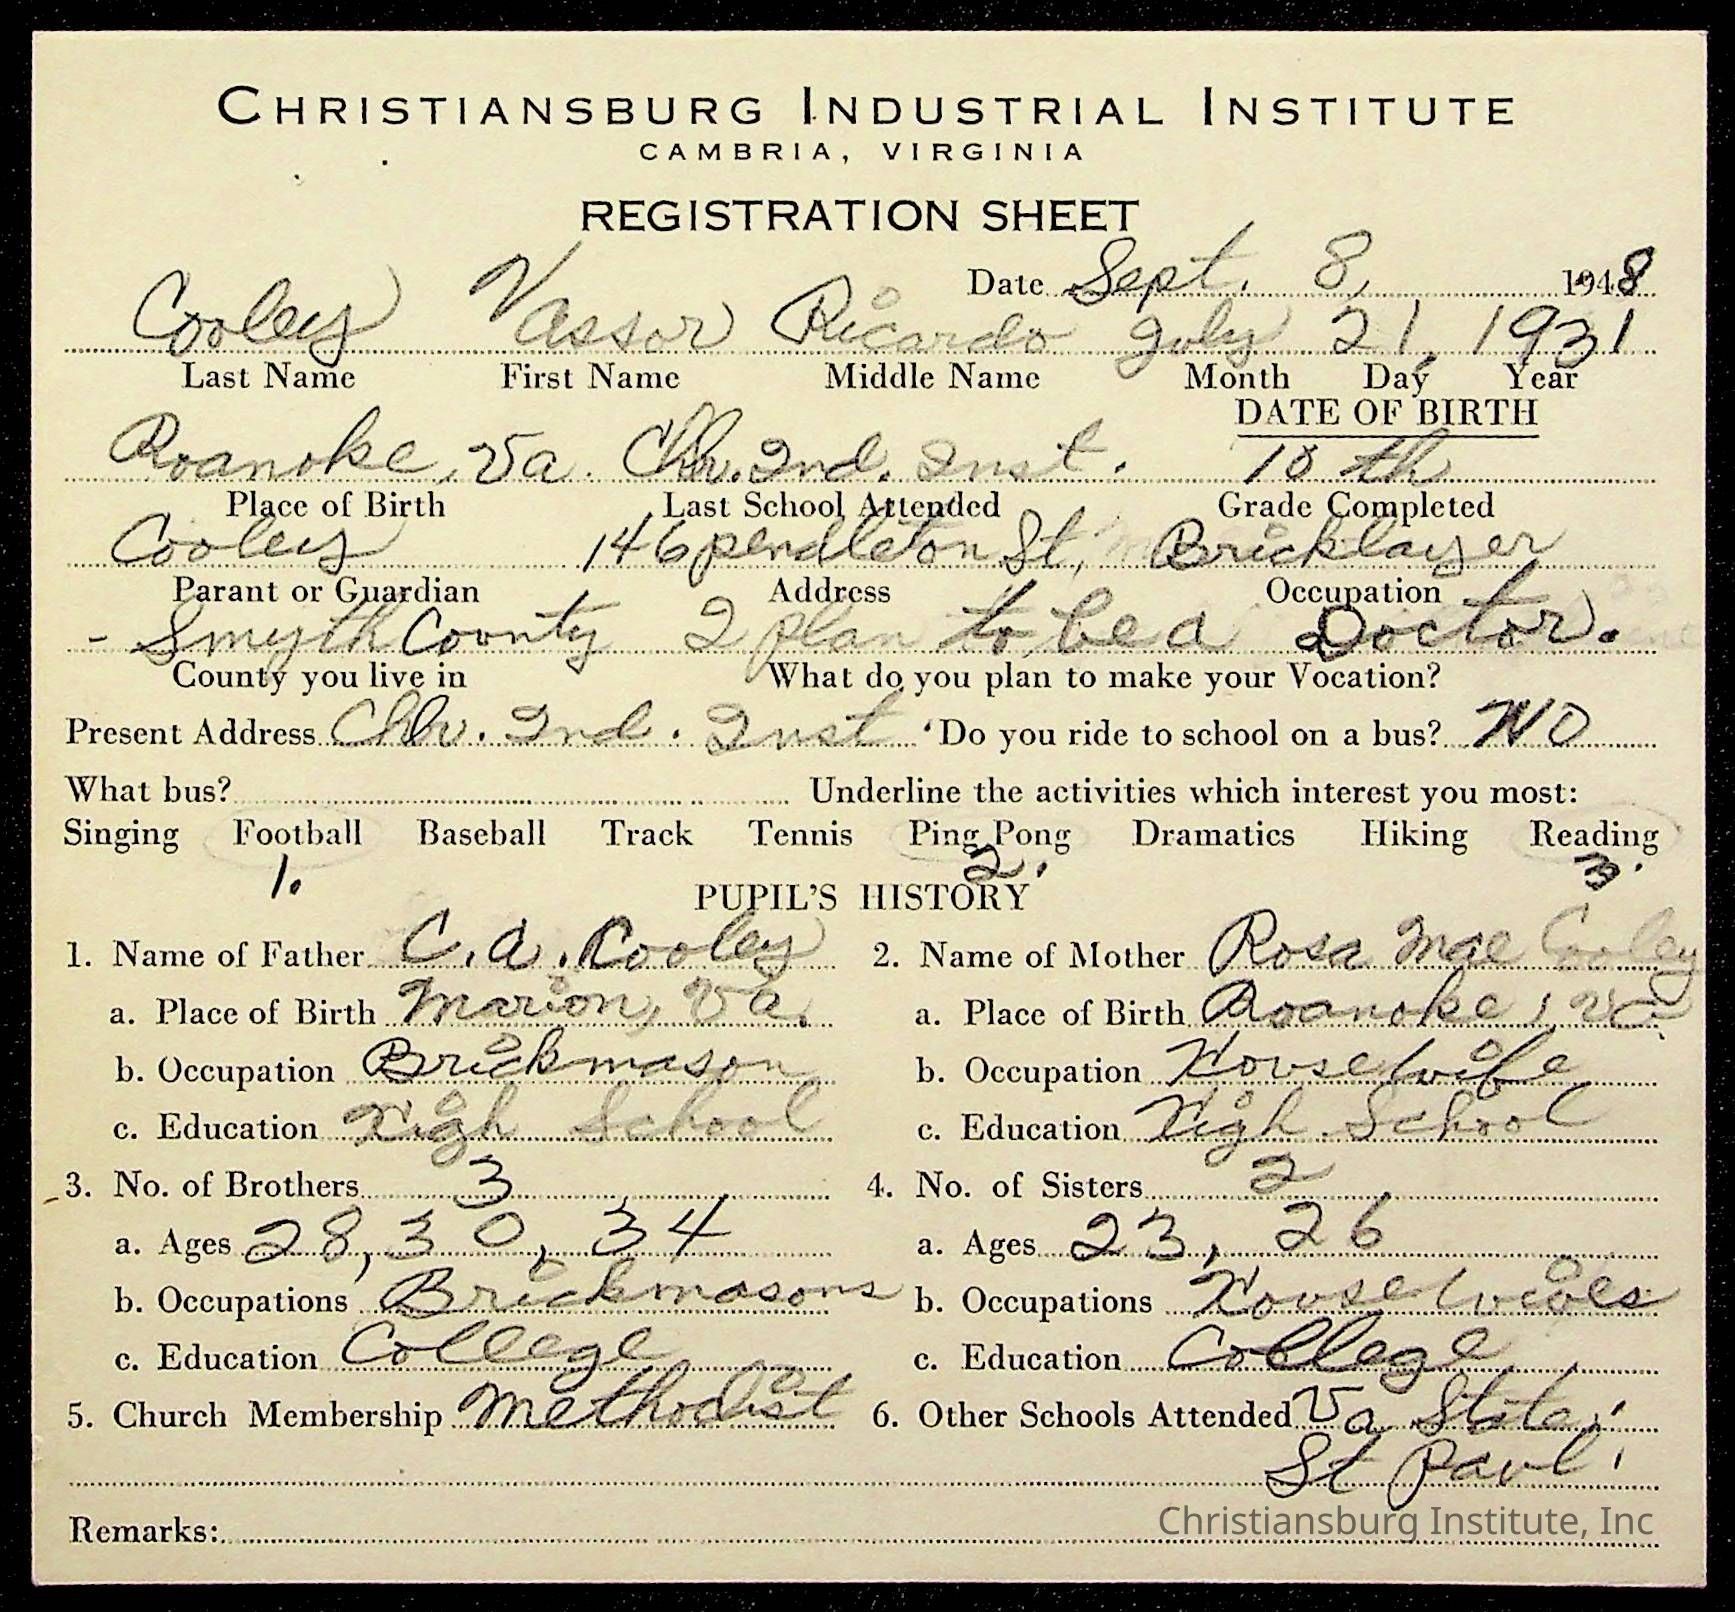 CHRISTIANSBURG INDUSTRIAL INSTITUTE
CAMBRIA, VIRGINIA
REGISTRATION SHEET
Date Sept. 8, 1948
Cooley Vassor Ricardo July 21, 1931
Last Name First Name Middle Name Month Day Year
DATE OF BIRTH
Roanoke, Va. Chr. Ind. Inst. 10 th
Place of Birth Last School Attended Grade Completed
Cooley 146 pendleton St, Bricklayer
Parant or Guardian Address Occupation
- Smyth County I plan to be a Doctor.
County you live in What do you plan to make your Vocation?
Present Address Chr. Ind. Inst Do you ride to school on a bus? NO
What bus? Underline the activities which interest you most:
Singing Football Baseball Track Tennis Ping Pong Dramatics Hiking Reading
1. 2. 3.
PUPIL'S HISTORY
1. Name of Father C. A. Cooley 2. Name of Mother Rosa Mae Cooley
a. Place of Birth Marion, Va. a. Place of Birth Roanoke, Va.
b. Occupation Brickmason b. Occupation Housewife
c. Education High School c. Education High School
3. No. of Brothers 3 4. No. of Sisters 2
a. Ages 28, 30, 34 a. Ages 23, 26
b. Occupations Brickmasons b. Occupations Housewives
c. Education College c. Education College
5. Church Membership Methodist 6. Other Schools Attended Va State,
St Paul.
Remarks:
Christiansburg Institute, Inc